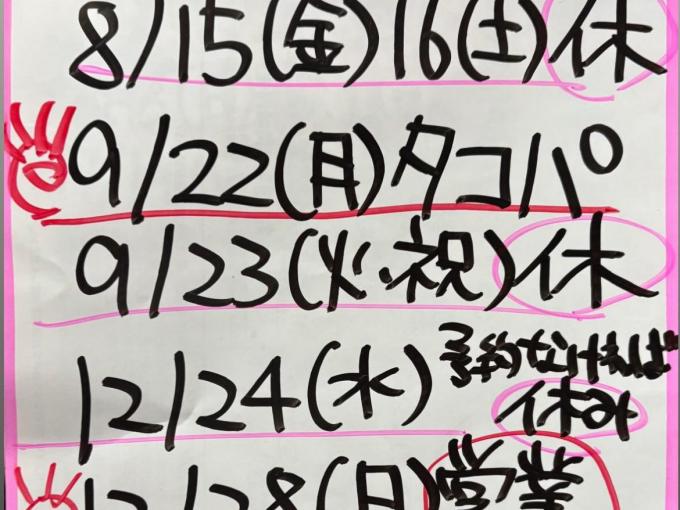 8/15(金)16(土)休
9/22(月)タコパ
9/23(火・祝)休
12/24(水)予約なければ
休み
12/28(日)営業